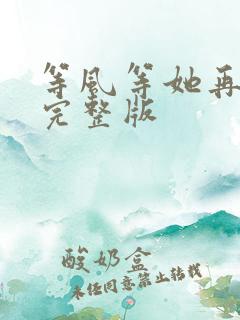 等风等她再
完整版
酸奶盒
未经同意禁止转载